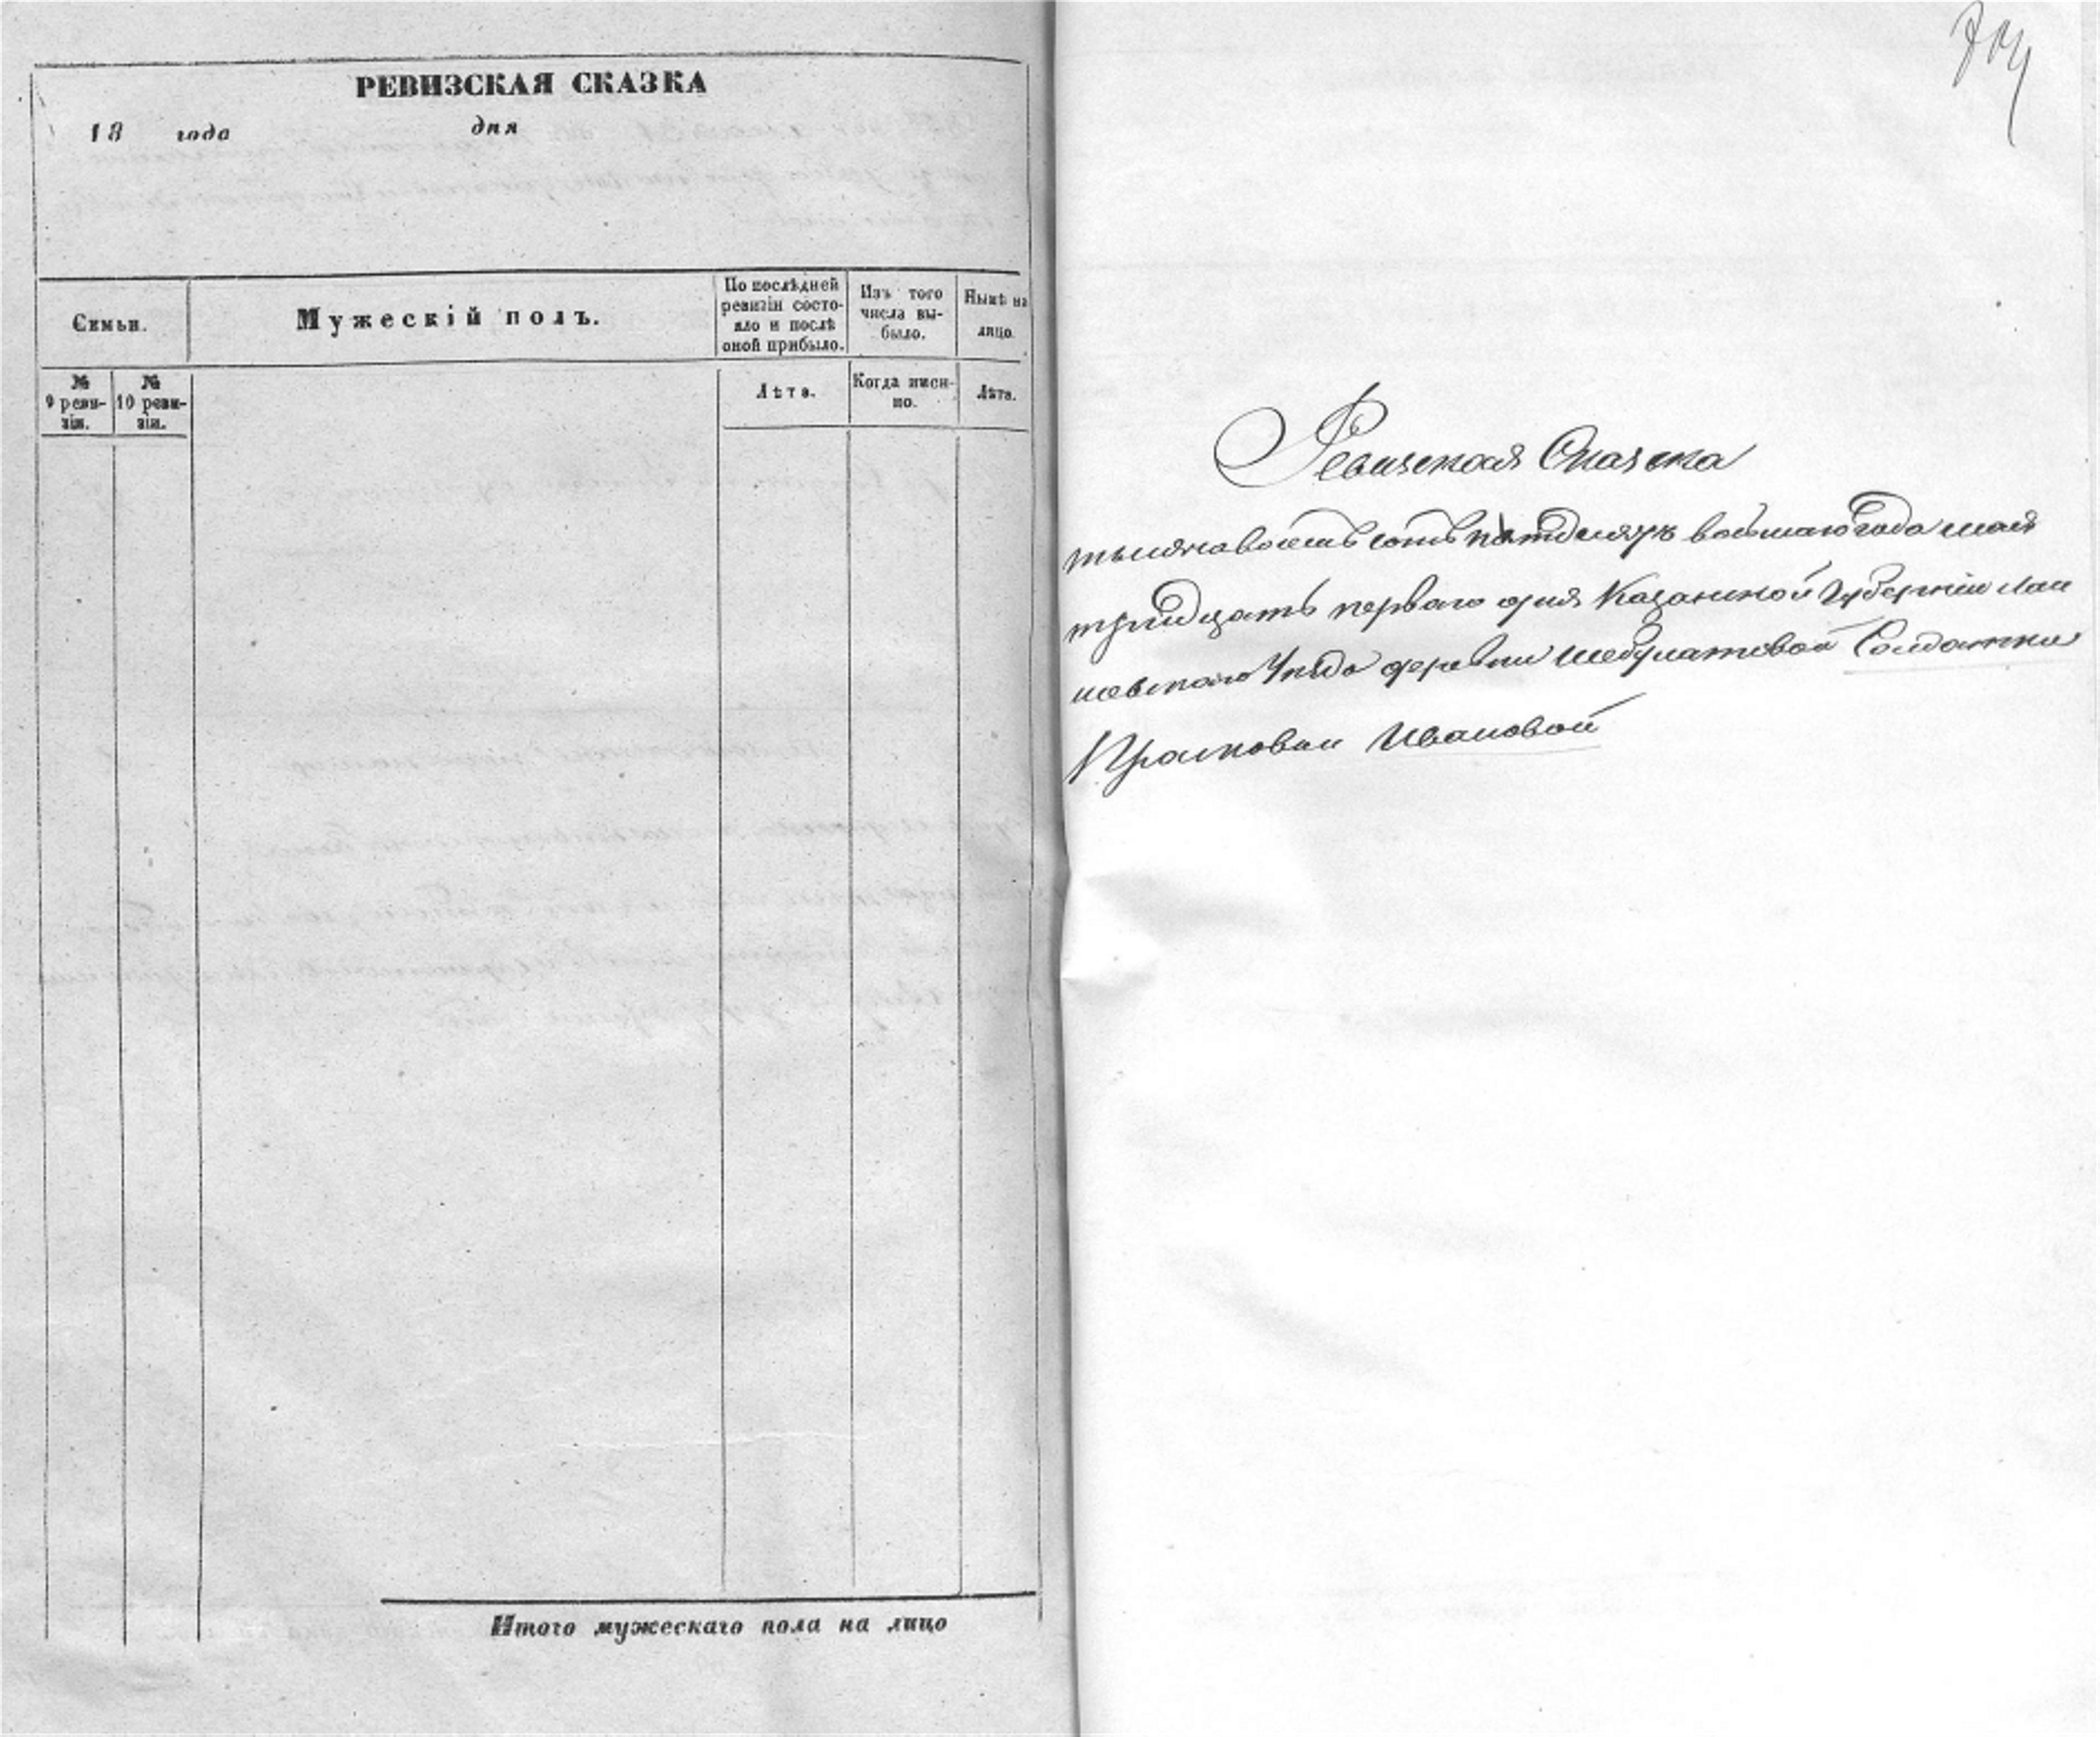 РЕВИЗСКАЯ СКАЗКА
18 года дня
Семьи.
Мужескій полъ.
По послѣдней
ревизіи состо-
яло и послѣ
оной прибыло.
Изъ того
числа вы-
было.
Нынѣ на
лицо.
№
9 реви-
зіи.
№
10 реви-
зіи.
Лѣта.
Когда имен-
но.
Лѣта.
Итого мужескаго пола на лицо
Ревизская Сказка
тысяча восемь сотъ пятдесятъ восьмаго года мая
тридцать перваго дня Казанской Губерніи Лаи
шевскаго Уѣзда деревни Солдатки
Прасковьи Ивановой